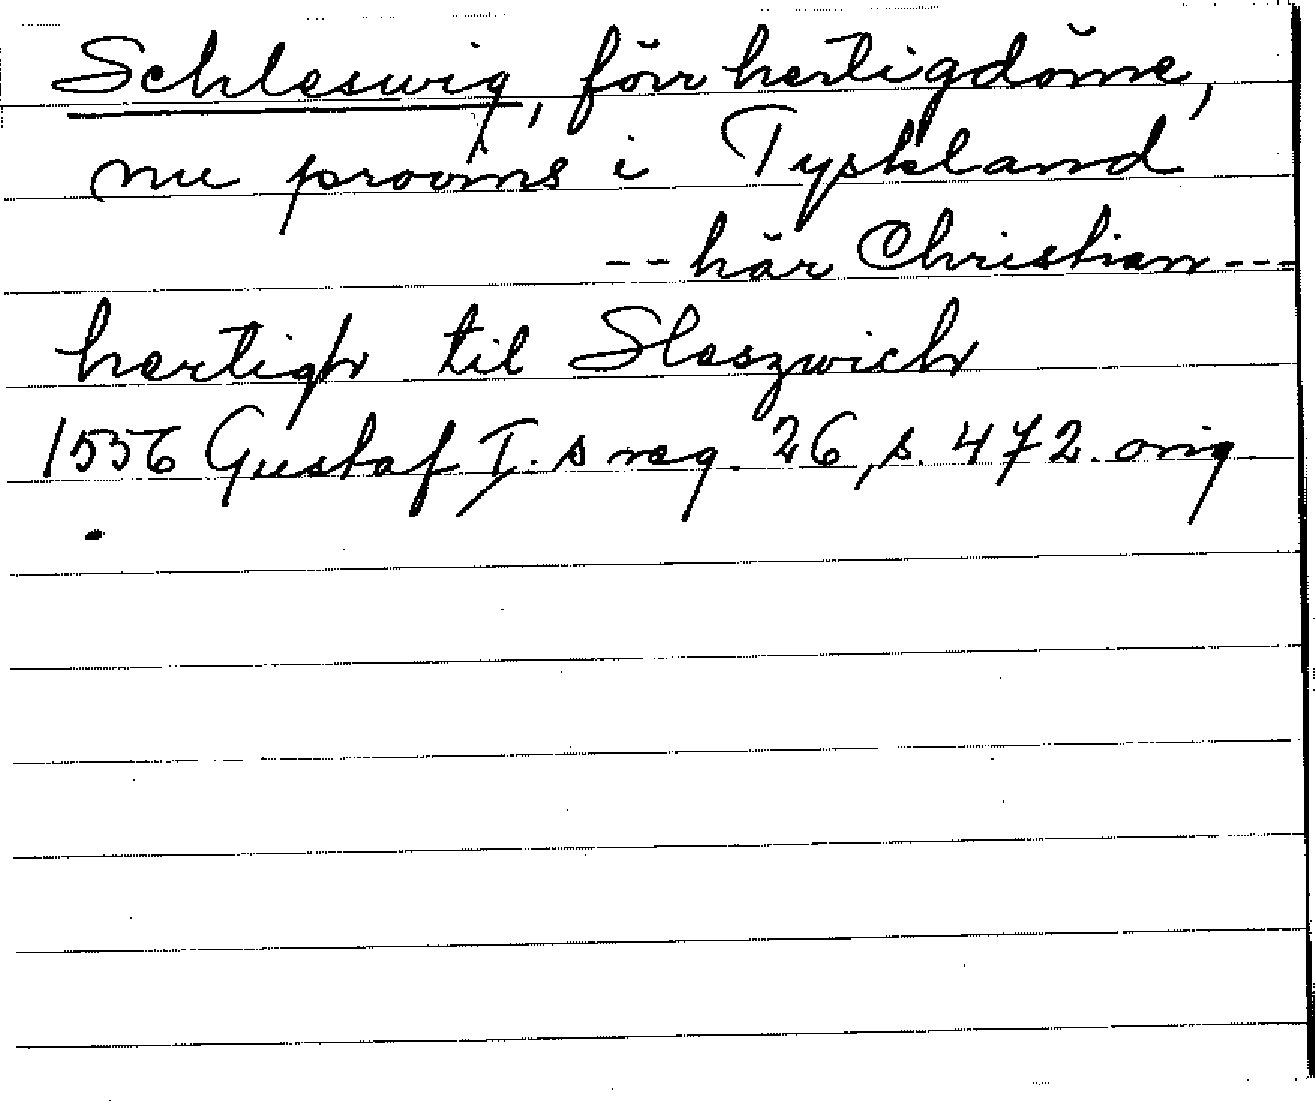 Schleswig, förr hertigdöme,
nu provins i Tyskland
-- här Christian ---
hertigh til Slaszwich
1556 Gustaf I. s reg. 26, s. 472. orig